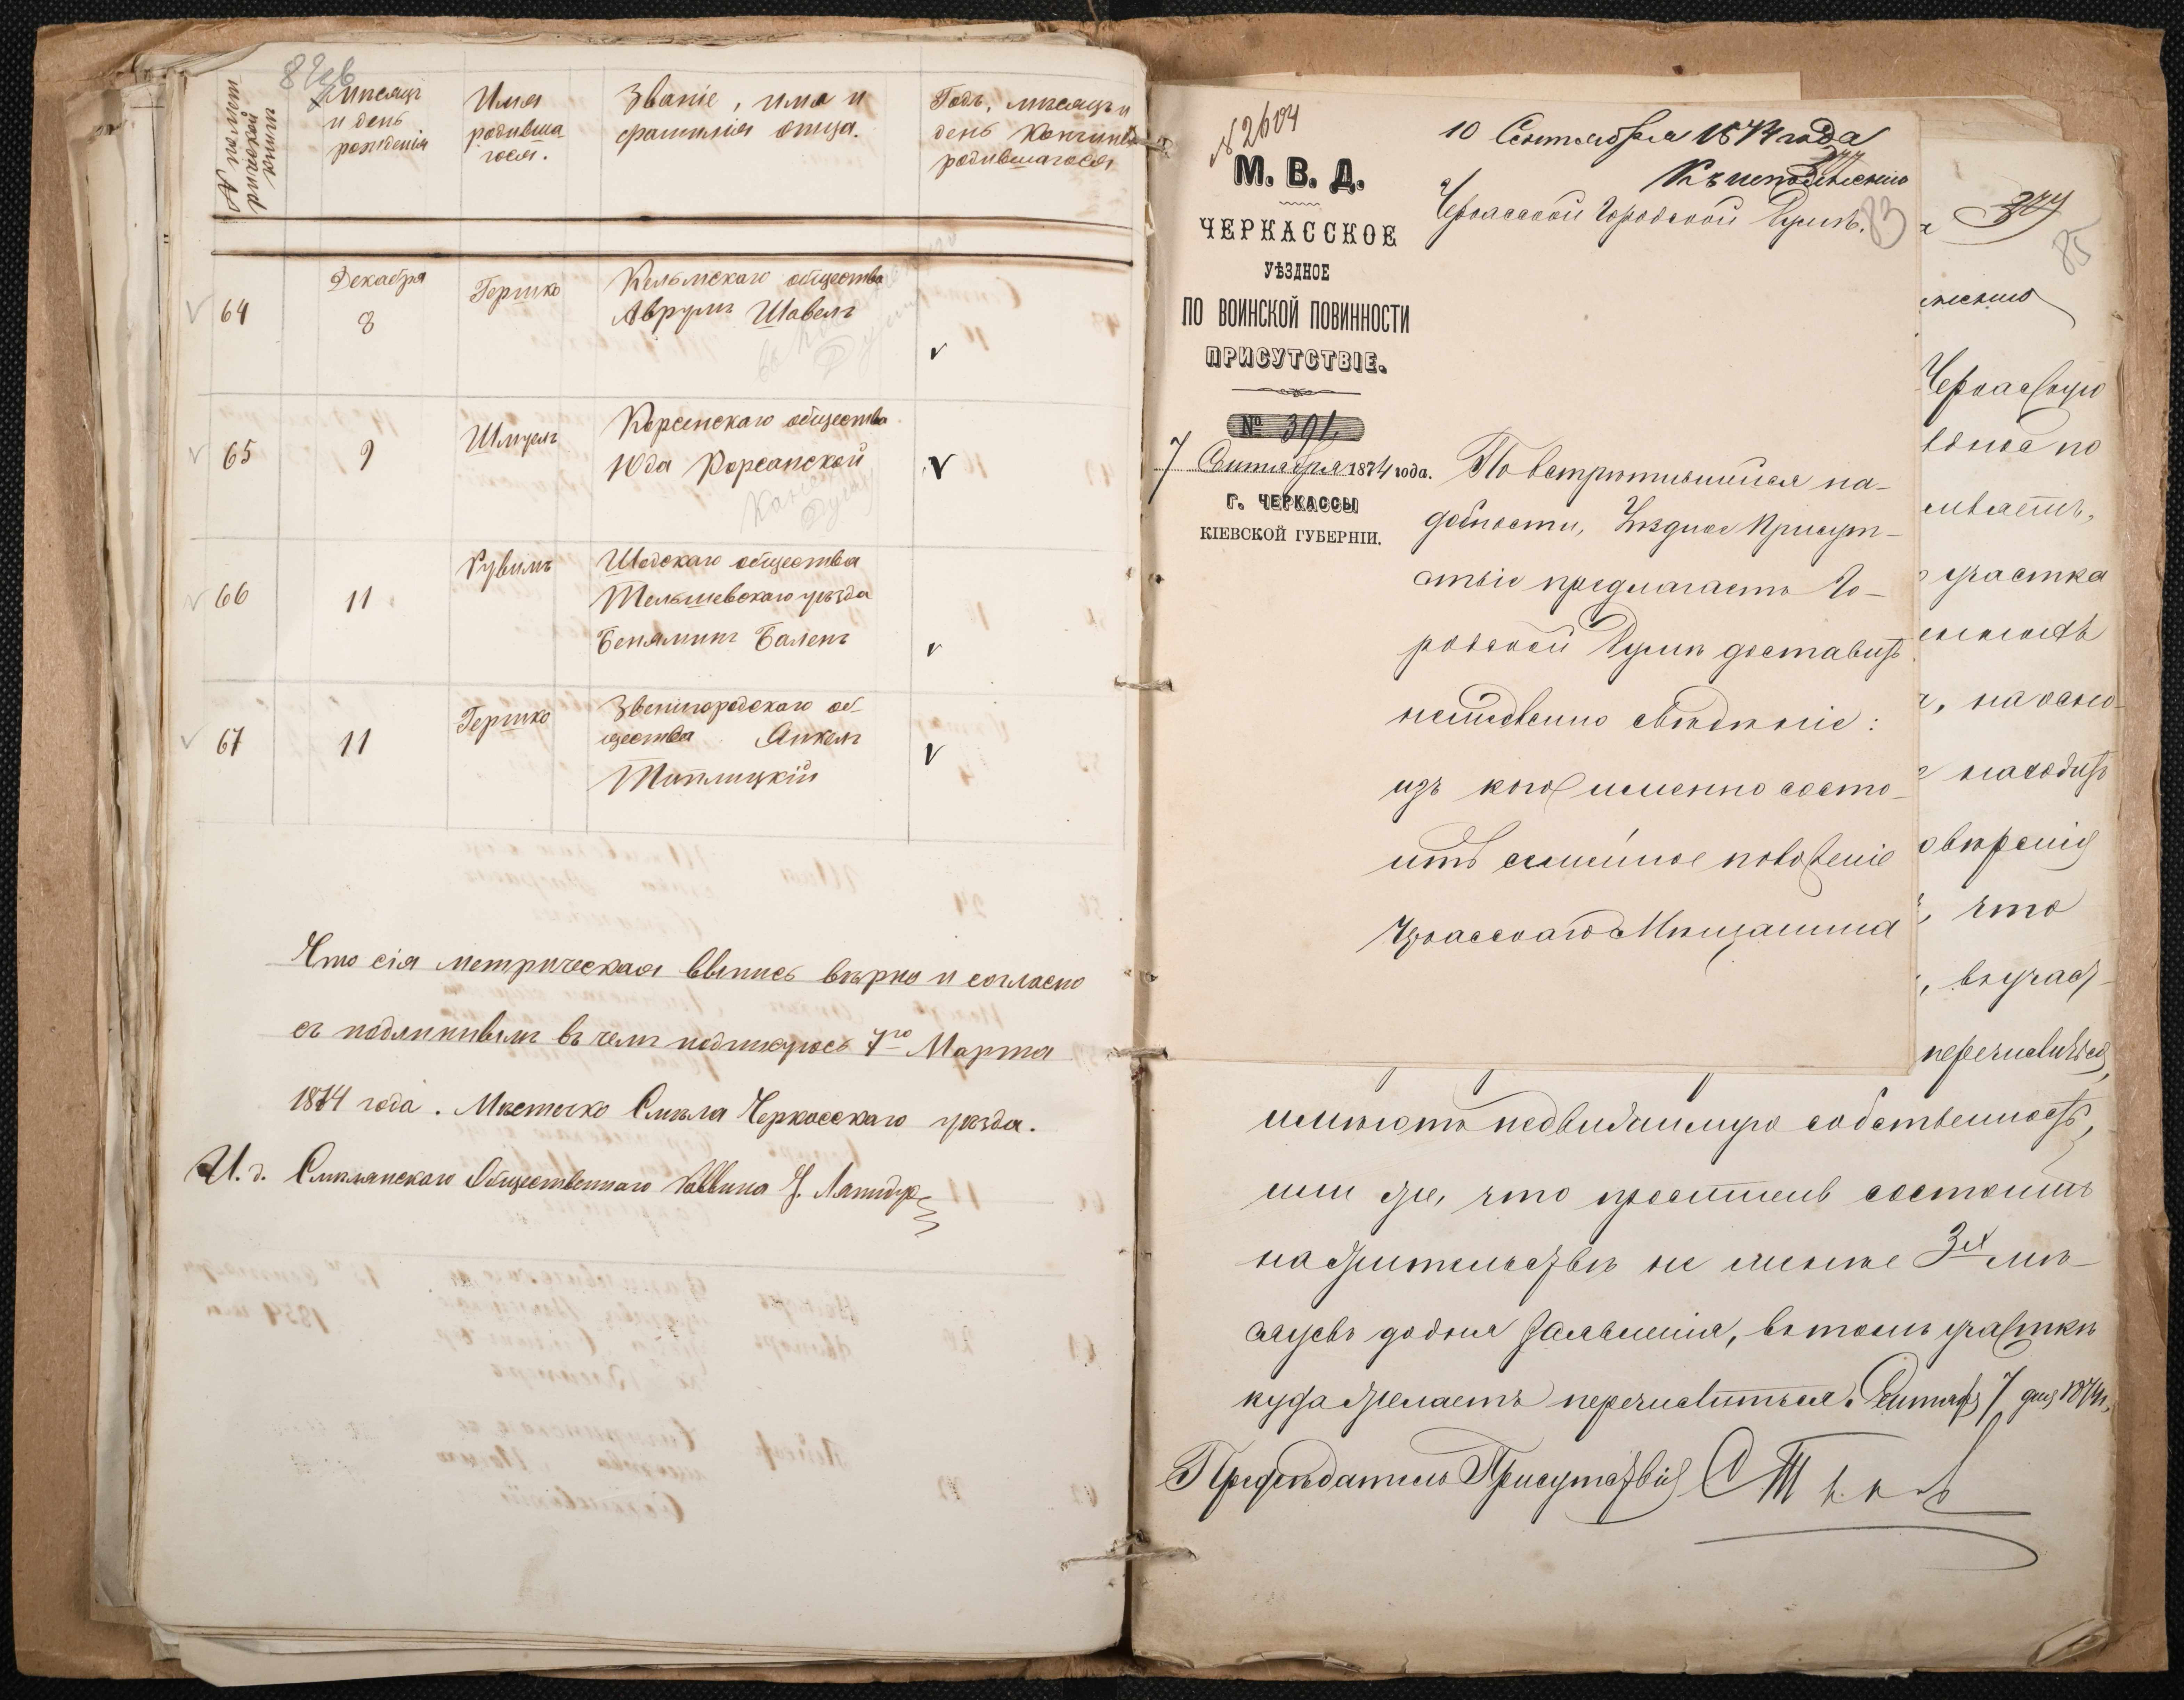 № по мет-
рической
книги
Мѣсяцъ
и день
рожденія
Имя
родивша
гося.
Званіе, имя и
фамилія отца.
Годъ, мѣсяцъ и
день кончины
родившагося
64
Декабря
8
Гершко
Кельмскаго общества
Аврумъ Шавель
65
9
Шмуель
Корсенскаго общества
Юда Корсанской
66
11
Рувимъ
Шодскаго общества
Тельшевскаго уѣзда
Беняминъ Баленъ
67
11
Гершко
Звенигородскаго об-
щества Янкель
Типлицкій
Что сія метрическая выпись вѣрна и согласно
съ подлиннымъ въ чемъ подпишусь 7го Марта
1874 года. Мѣстечко Смѣла Черкасскаго уѣзда.
И. д. Смѣлянскаго Общественнаго Раввина
№ 2604
10 Сентября 1874 года
Къ исполненію
М. В. Д.
ЧЕРКАССКОЕ
УѢЗДНОЕ
ПО ВОИНСКОЙ ПОВИННОСТИ
ПРИСУТСТВІЕ.
№ 391
7 Сентября 1874 года.
Г. ЧЕРКАССЫ
КІЕВСКОЙ ГУБЕРНІИ.
Черкасской Городской Думѣ.
83
По встрѣтившейся на-
добности, Уѣздное Присут-
ствіе предлагаетъ Го-
родской Думѣ доставить
немедленно свѣдѣніе:
изъ кого именно состо-
итъ семейное положеніе
Черкасскаго Мѣщанина
377
85
Черкасскую
участка
находитъ
что
перечислиться,
имѣютъ недвижимую собственность,
или же, что проситель состоитъ
на жительствѣ не менѣе 3х мѣ-
сяцевъ до дня заявленія, въ томъ участкѣ
куда желаетъ перечислиться. Сентября 7 дня 1874 г.
Предсѣдатель Присутствія